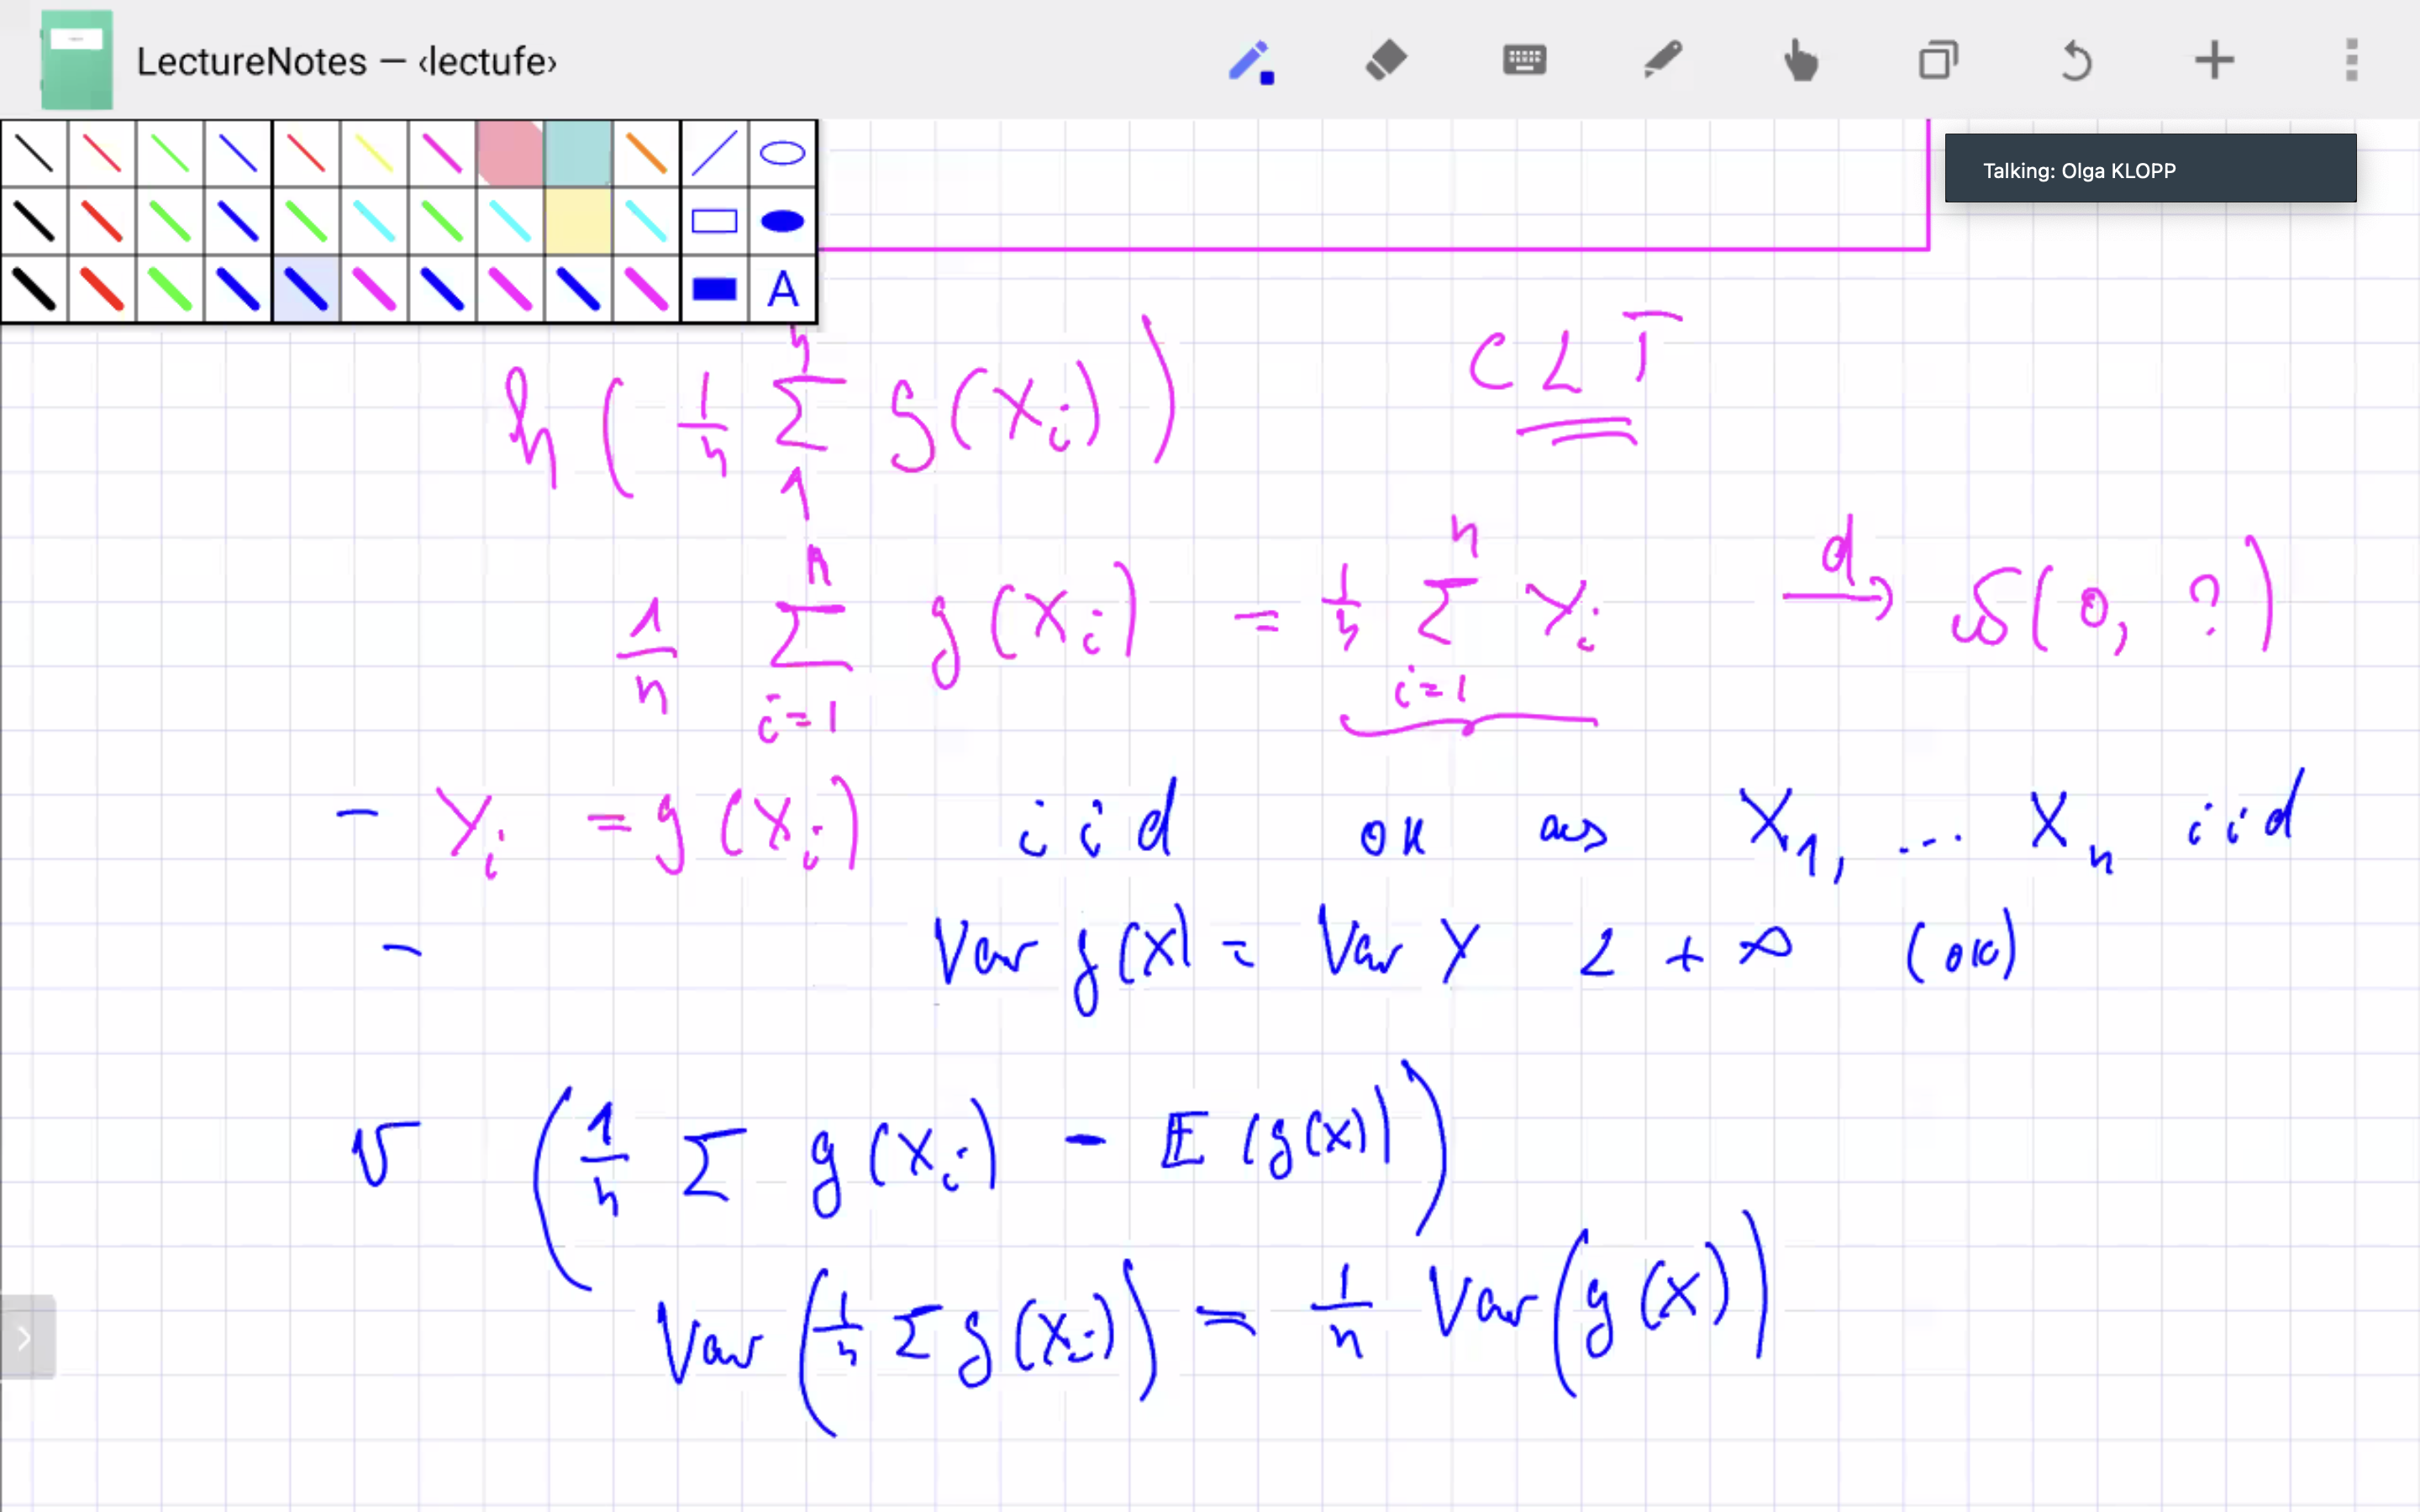 LectureNotes — ‹lectufe›
Talking: Olga KLOPP
A
h ( 1/n Σ_1^n g(X_i) ) CLT
1/n Σ_{i=1}^n g(X_i) = 1/n Σ_{i=1}^n Y_i →^d N(0, ?)
- Y_i = g(X_i) iid ok as X_1, ... X_n iid
- Var g(X) = Var Y < + ∞ (ok)
√ ( 1/n Σ g(X_i) - E(g(X)) )
Var ( 1/n Σ g(X_i) ) = 1/n Var ( g(X) )